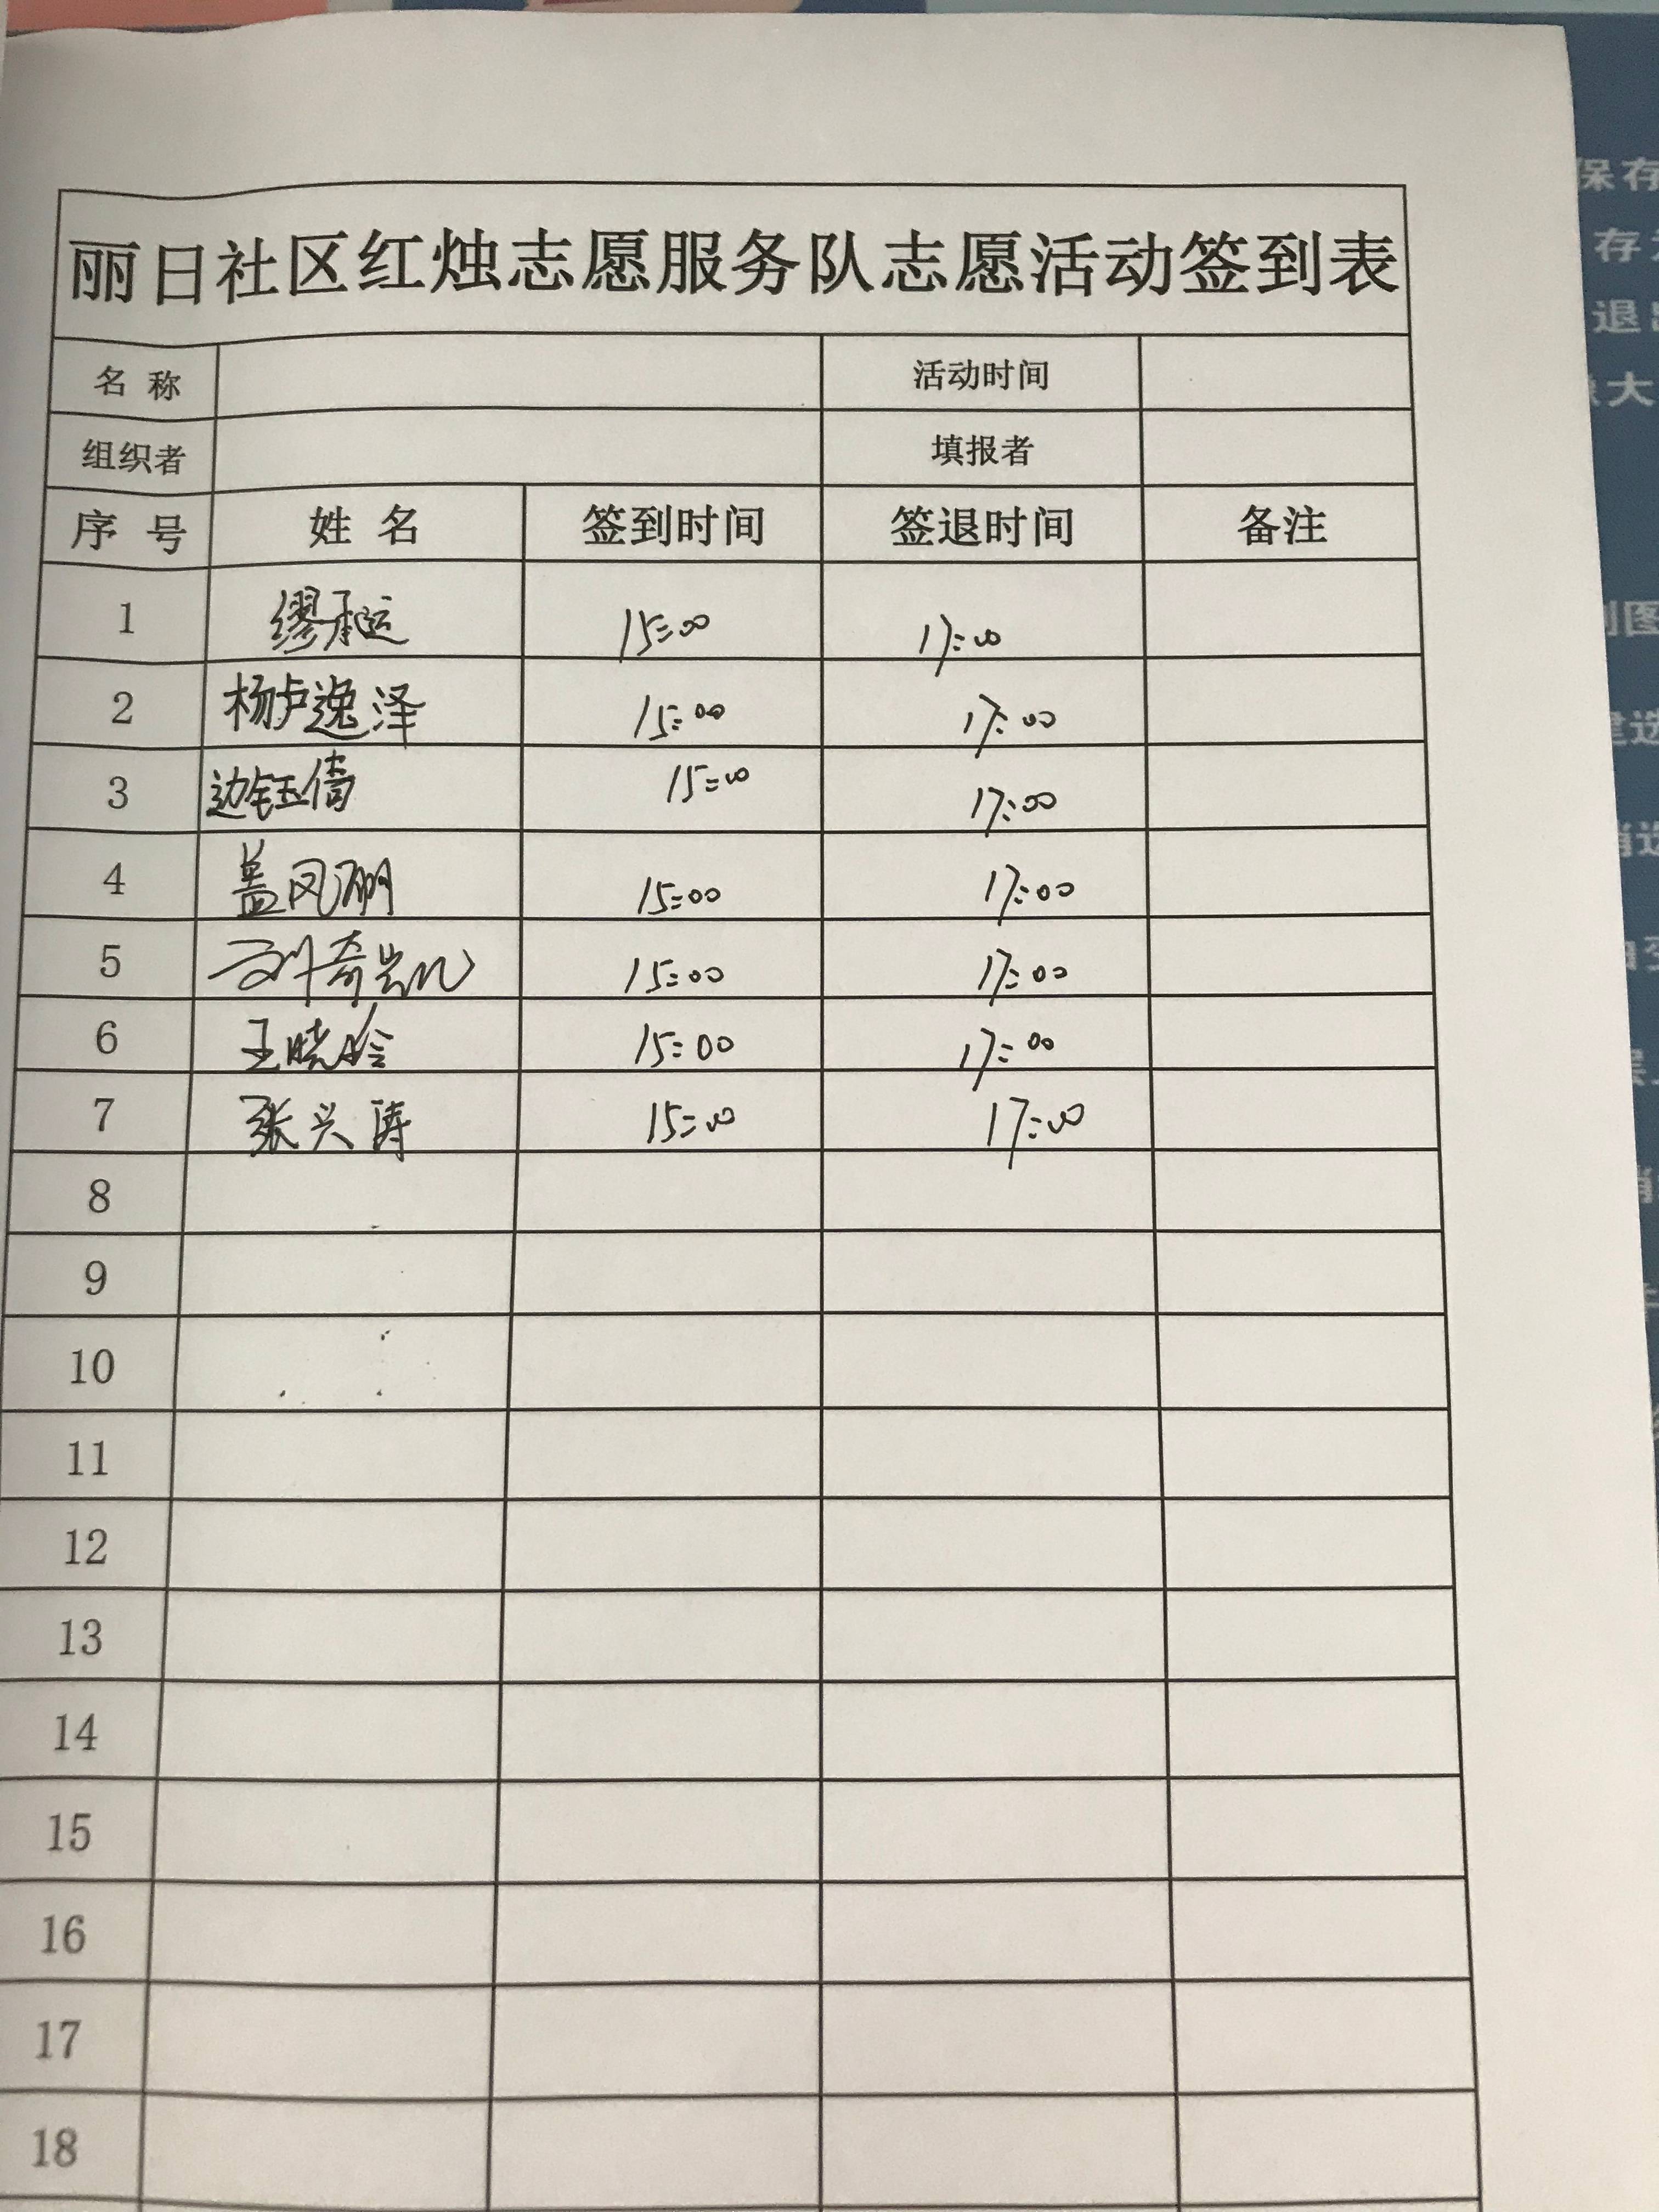 丽日社区红烛志愿服务队志愿活动签到表
名 称 活动时间
组织者 填报者
序 号 姓 名 签到时间 签退时间 备注
1 缪承运 15:00 17:00
2 杨卢逸泽 15:00 17:00
3 边钰倩 15:00 17:00
4 盖风丽 15:00 17:00
5 刘奇 15:00 17:00
6 王晓晗 15:00 17:00
7 张兴涛 15:00 17:00
8
9
10
11
12
13
14
15
16
17
18
保存
存
退出
大
图
建选
选